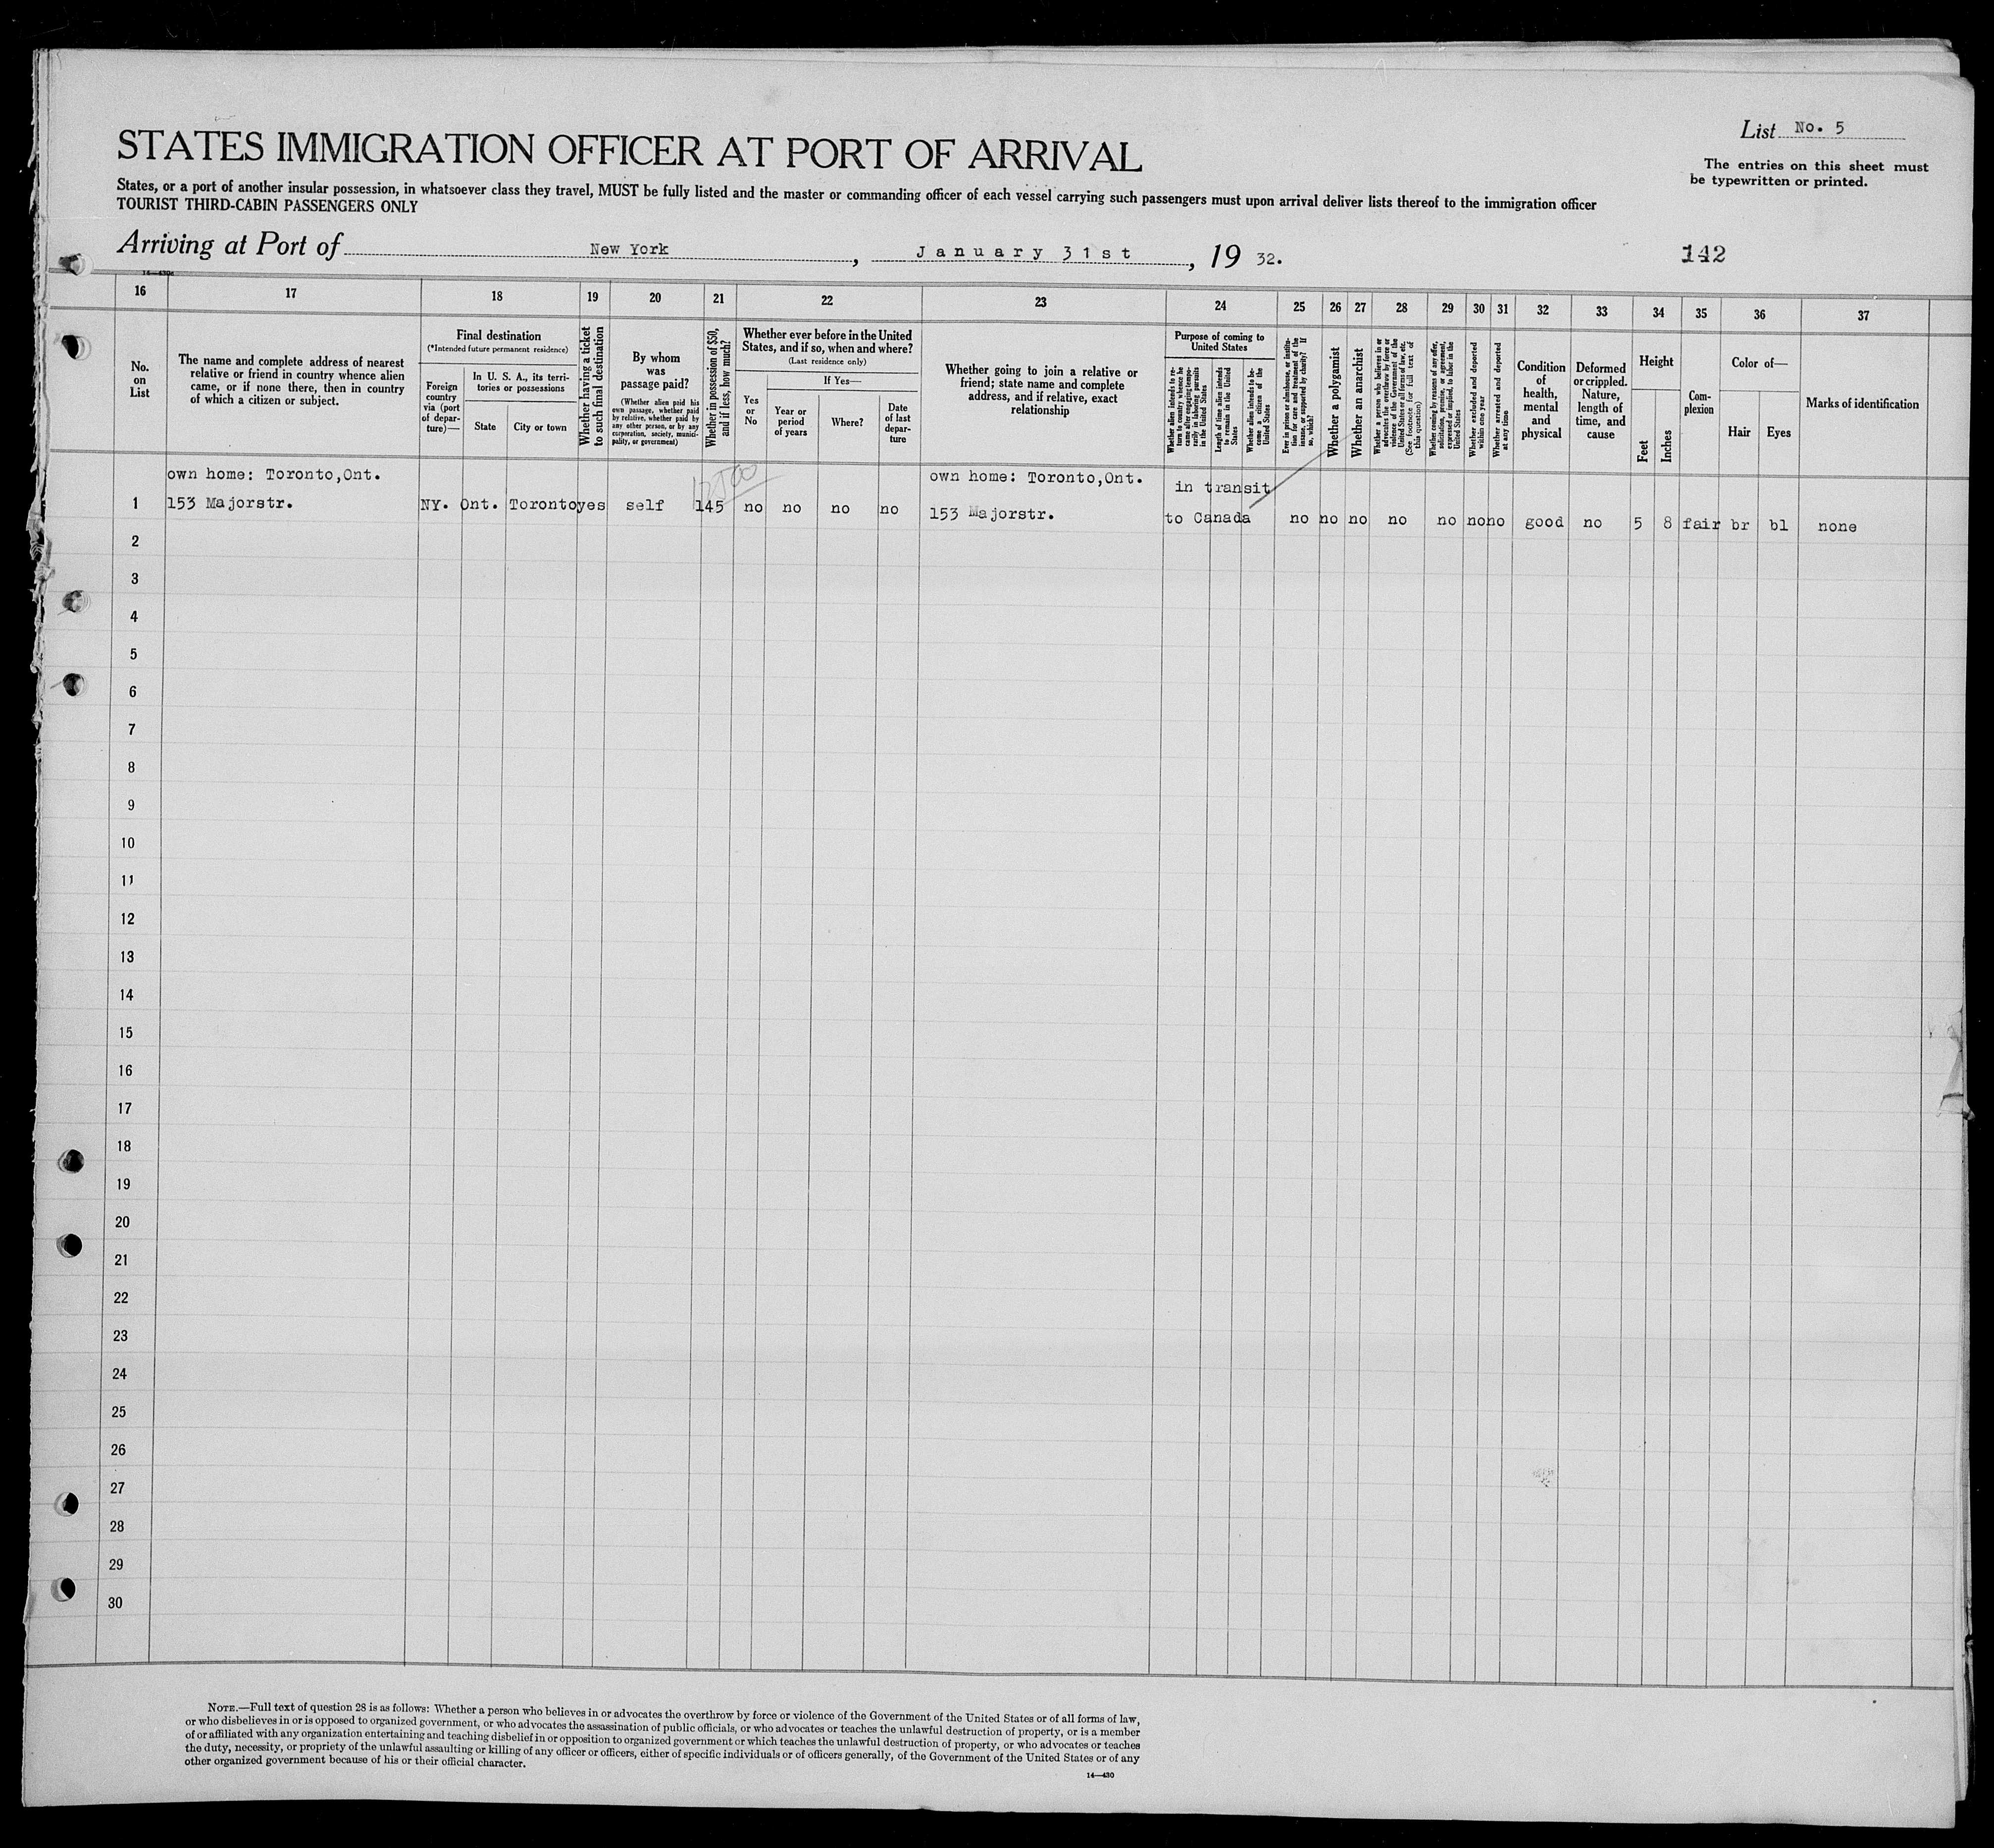 List No. 5
STATES IMMIGRATION OFFICER AT PORT OF ARRIVAL
The entries on this sheet must
be typewritten or printed.
States, or a port of another insular possession, in whatsoever class they travel, MUST be fully listed and the master or commanding officer of each vessel carrying such passengers must upon arrival deliver lists thereof to the immigration officer
TOURIST THIRD-CABIN PASSENGERS ONLY
Arriving at Port of New York, January 31st, 19 32.
142
14—430a
16 17 18 19 20 21 22 23 24 25 26 27 28 29 30 31 32 33 34 35 36 37
No.
on
List
The name and complete address of nearest
relative or friend in country whence alien
came, or if none there, then in country
of which a citizen or subject.
Final destination
(*Intended future permanent residence)
Foreign
country
via (port
of depar-
ture)—
In U. S. A., its terri-
tories or possessions
State
City or town
Whether having a ticket
to such final destination
By whom
was
passage paid?
(Whether alien paid his
own passage, whether paid
by relative, whether paid by
any other person, or by any
corporation, society, munici-
pality, or government)
Whether in possession of $50,
and if less, how much?
Whether ever before in the United
States, and if so, when and where?
(Last residence only)
Yes
or
No
If Yes—
Year or
period
of years
Where?
Date
of last
depar-
ture
Whether going to join a relative or
friend; state name and complete
address, and if relative, exact
relationship
Purpose of coming to
United States
Whether alien intends to re-
turn to country whence he
came after engaging tempo-
rarily in laboring pursuits
in the United States
Length of time alien intends
to remain in the United
States
Whether alien intends to be-
come a citizen of the
United States
Ever in prison or almshouse, or institu-
tion for care and treatment of the
insane, or supported by charity? If
so, which?
Whether a polygamist
Whether an anarchist
Whether a person who believes in or
advocates the overthrow by force or
violence of the Government of the
United States or all forms of law, etc.
(See footnote for full text of
this question)
Whether coming by reason of any offer,
solicitation, promise, or agreement,
expressed or implied, to labor in the
United States
Whether excluded and deported
within one year
Whether arrested and deported
at any time
Condition
of
health,
mental
and
physical
Deformed
or crippled.
Nature,
length of
time, and
cause
Height
Feet
Inches
Com-
plexion
Color of—
Hair
Eyes
Marks of identification
own home: Toronto,Ont. own home: Toronto,Ont. in transit
1 153 Majorstr. NY. Ont. Toronto yes self 145 no no no no 153 Majorstr. to Canada no no no no no no no good no 5 8 fair br bl none
2
3
4
5
6
7
8
9
10
11
12
13
14
15
16
17
18
19
20
21
22
23
24
25
26
27
28
29
30
NOTE.—Full text of question 28 is as follows: Whether a person who believes in or advocates the overthrow by force or violence of the Government of the United States or of all forms of law,
or who disbelieves in or is opposed to organized government, or who advocates the assassination of public officials, or who advocates or teaches the unlawful destruction of property, or is a member
of or affiliated with any organization entertaining and teaching disbelief in or opposition to organized government or which teaches the unlawful destruction of property, or who advocates or teaches
the duty, necessity, or propriety of the unlawful assaulting or killing of any officer or officers, either of specific individuals or of officers generally, of the Government of the United States or of any
other organized government because of his or their official character.
14—430